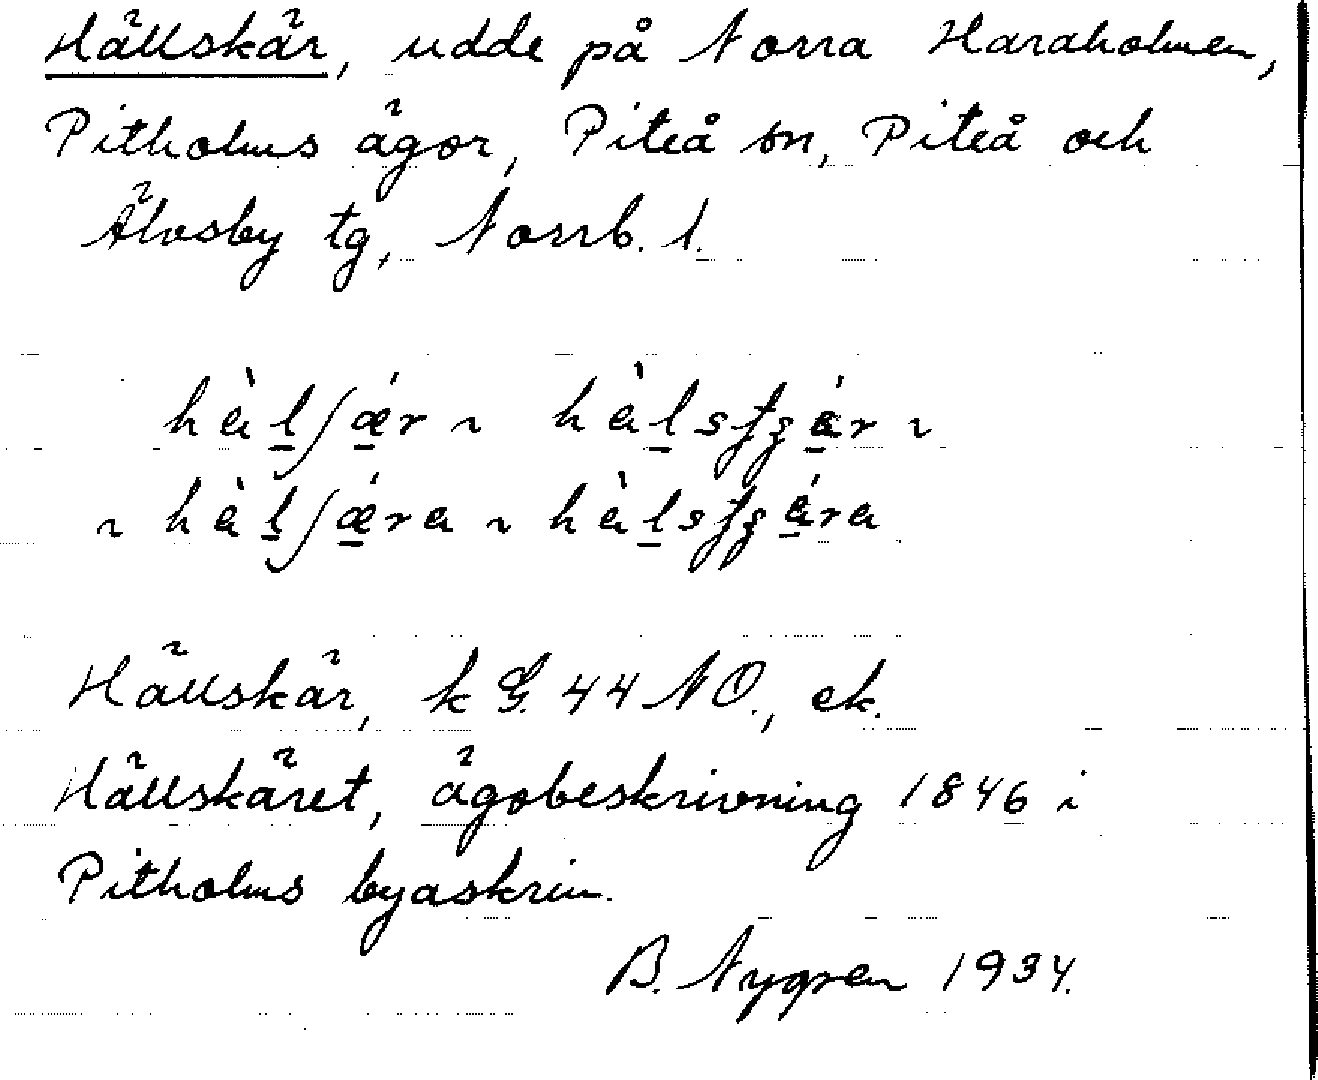 Hällskär, udde på Norra Haraholmen,
Pitholms ägor, Piteå sn, Piteå och
Älvsby tg, Norrb. l.
Hällskär, k G. 44 NO., ek.
Hällskäret, ägobeskrivning 1846 i
Pitholms byaskrin.
B. Nygren 1934.